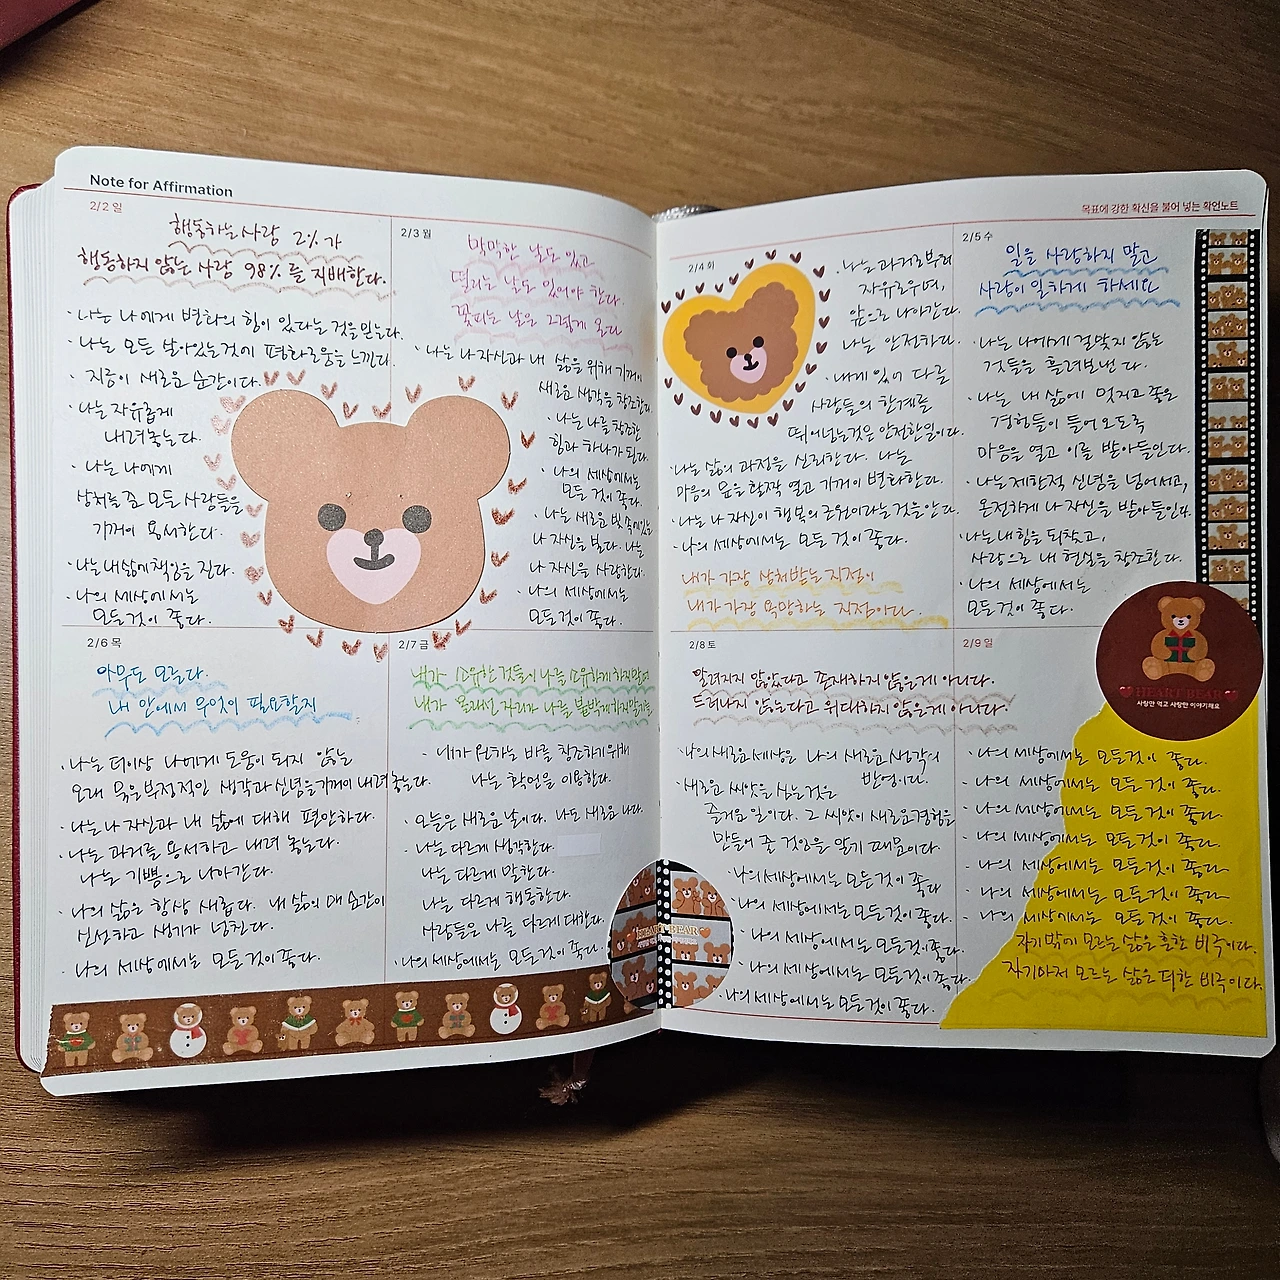 Note for Affirmation
목표에 강한 확신을 불어 넣는 확언노트
2/2 일
행동하는 사람 2%가
행동하지 않는 사람 98%를 지배한다.
· 나는 나에게 변화의 힘이 있다는 것을 믿는다.
· 나는 모든 살아있는것에 평화로움을 느낀다.
· 지금이 새로운 순간이다.
· 나는 자유롭게
내려놓는다.
· 나는 나에게
상처를 준 모든 사람들을
기꺼이 용서한다.
· 나는 내삶에 책임을 진다.
· 나의 세상에서는
모든것이 좋다.
2/3 월
막막한 날도 있고
떨리는 날도 있어야 한다.
꽃피는 날은 그렇게 온다
· 나는 나 자신과 내 삶을 위해 기꺼이
새로운 생각을 창조한다.
· 나는 나를 창조한
힘과 하나가 된다.
· 나의 세상에서는
모든 것이 좋다.
· 나는 새로운 빛속에있는
나 자신을 본다. 나는
나 자신을 사랑한다.
· 나의 세상에서는
모든것이 좋다.
2/4 화
· 나는 과거로부터
자유로우며,
앞으로 나아간다.
나는 안전하다.
· 내게 있어 다른
사람들의 한계를
뛰어넘는것은 안전한일이다.
· 나는 삶의 과정을 신뢰한다. 나는
마음의 문을 활짝 열고 기꺼이 변화한다.
· 나는 나 자신이 행복의 근원이라는 것을 안다.
· 나의 세상에서는 모든 것이 좋다.
내가 가장 상처받는 지점이
내가 가장 욕망하는 지점이다.
2/5 수
일을 사랑하지 말고
사랑이 일하게 하세요
· 나는 나에게 걸맞지 않는
것들을 흘려보낸다.
· 나는 내 삶에 멋지고 좋은
경험들이 들어오도록
마음을 열고 이를 받아들인다.
· 나는 제한적 신념을 넘어서고,
온전하게 나 자신을 받아들인다.
· 나는 내 힘을 되찾고,
사랑으로 내 현실을 창조한다.
· 나의 세상에서는
모든 것이 좋다.
2/6 목
아무도 모른다.
내 안에서 무엇이 필요할지
· 나는 더이상 나에게 도움이 되지 않는
오래 묵은 부정적인 생각과 신념을 기꺼이 내려놓는다.
· 나는 나 자신과 내 삶에 대해 편안하다.
· 나는 과거를 용서하고 내려 놓는다.
나는 기쁨으로 나아간다.
· 나의 삶은 항상 새롭다. 내 삶의 매 순간이
신선하고 생기가 넘친다.
· 나의 세상에서는 모든것이 좋다.
2/7 금
내가 소유한 것들이 나를 소유하게 하지말며
내가 올라설 자리가 나를 붙박게하지말기를
· 내가 원하는 바를 창조하기위해
나는 확언을 이용한다.
· 오늘은 새로운 날이다. 나도 새로운 나다.
· 나는 다르게 생각한다.
나는 다르게 말한다.
나는 다르게 행동한다.
사람들은 나를 다르게 대한다.
· 나의 세상에서는 모든것이 좋다.
2/8 토
알려지지 않았다고 존재하지 않은게 아니다.
드러나지 않는다고 위대하지 않은게 아니다.
· 나의 새로운세상은 나의 새로운 생각의
반영이다.
· 새로운 씨앗을 심는것은
즐거운 일이다. 그 씨앗이 새로운경험을
만들어 줄 것임을 알기 때문이다.
· 나의 세상에서는 모든것이 좋다
· 나의 세상에서는 모든것이 좋다.
· 나의 세상에서는 모든것이 좋다.
· 나의 세상에서는 모든것이 좋다.
· 나의 세상에서는 모든것이 좋다.
2/9 일
· 나의 세상에서는 모든것이 좋다.
· 나의 세상에서는 모든것이 좋다.
· 나의 세상에서는 모든것이 좋다.
· 나의 세상에서는 모든것이 좋다.
· 나의 세상에서는 모든것이 좋다.
· 나의 세상에서는 모든것이 좋다.
· 나의 세상에서는 모든것이 좋다.
자기밖에 모르는 삶은 흔한 비극이다.
자기마저 모르는 삶은 더한 비극이다.
HEART BEAR
사랑만 먹고 사랑만 이야기해요
HEART BEAR